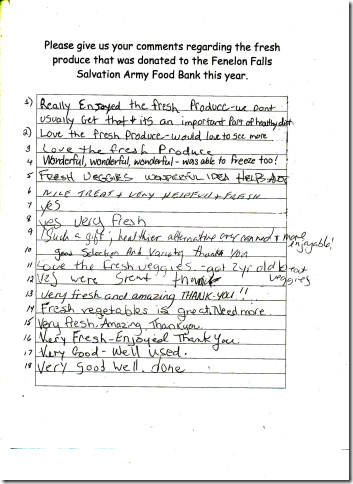 Please give us your comments regarding the fresh
produce that was donated to the Fenelon Falls
Salvation Army Food Bank this year.
1) Really Enjoyed the fresh Produce-we dont
usually Get that & its an important Part of healthy diet
2) Love the fresh Produce-would love to see more
3 Love the fresh Produce
4 Wonderful, wonderful, wonderful - was able to freeze too!
5 FRESH VEGGIES WONDERFUL IDEA HELPS
6 NICE TREAT & VERY HELPFUL & FRESH
7 yes
8 yes very fresh
9 Such a gift, healthier alternative over canned & more enjoyable!
10 good Selection And Variety thank you
11 Love the fresh veggies - got 2yr old to eat veggies
12 Veg were Great thank
13 very fresh and amazing THANK-YOU!!
14 Fresh vegetables is great. Need more
15 Very fresh. Amazing Thankyou
16 Very Fresh-Enjoyed Thank You
17 Very Good - Well used.
18 Very Good well. done